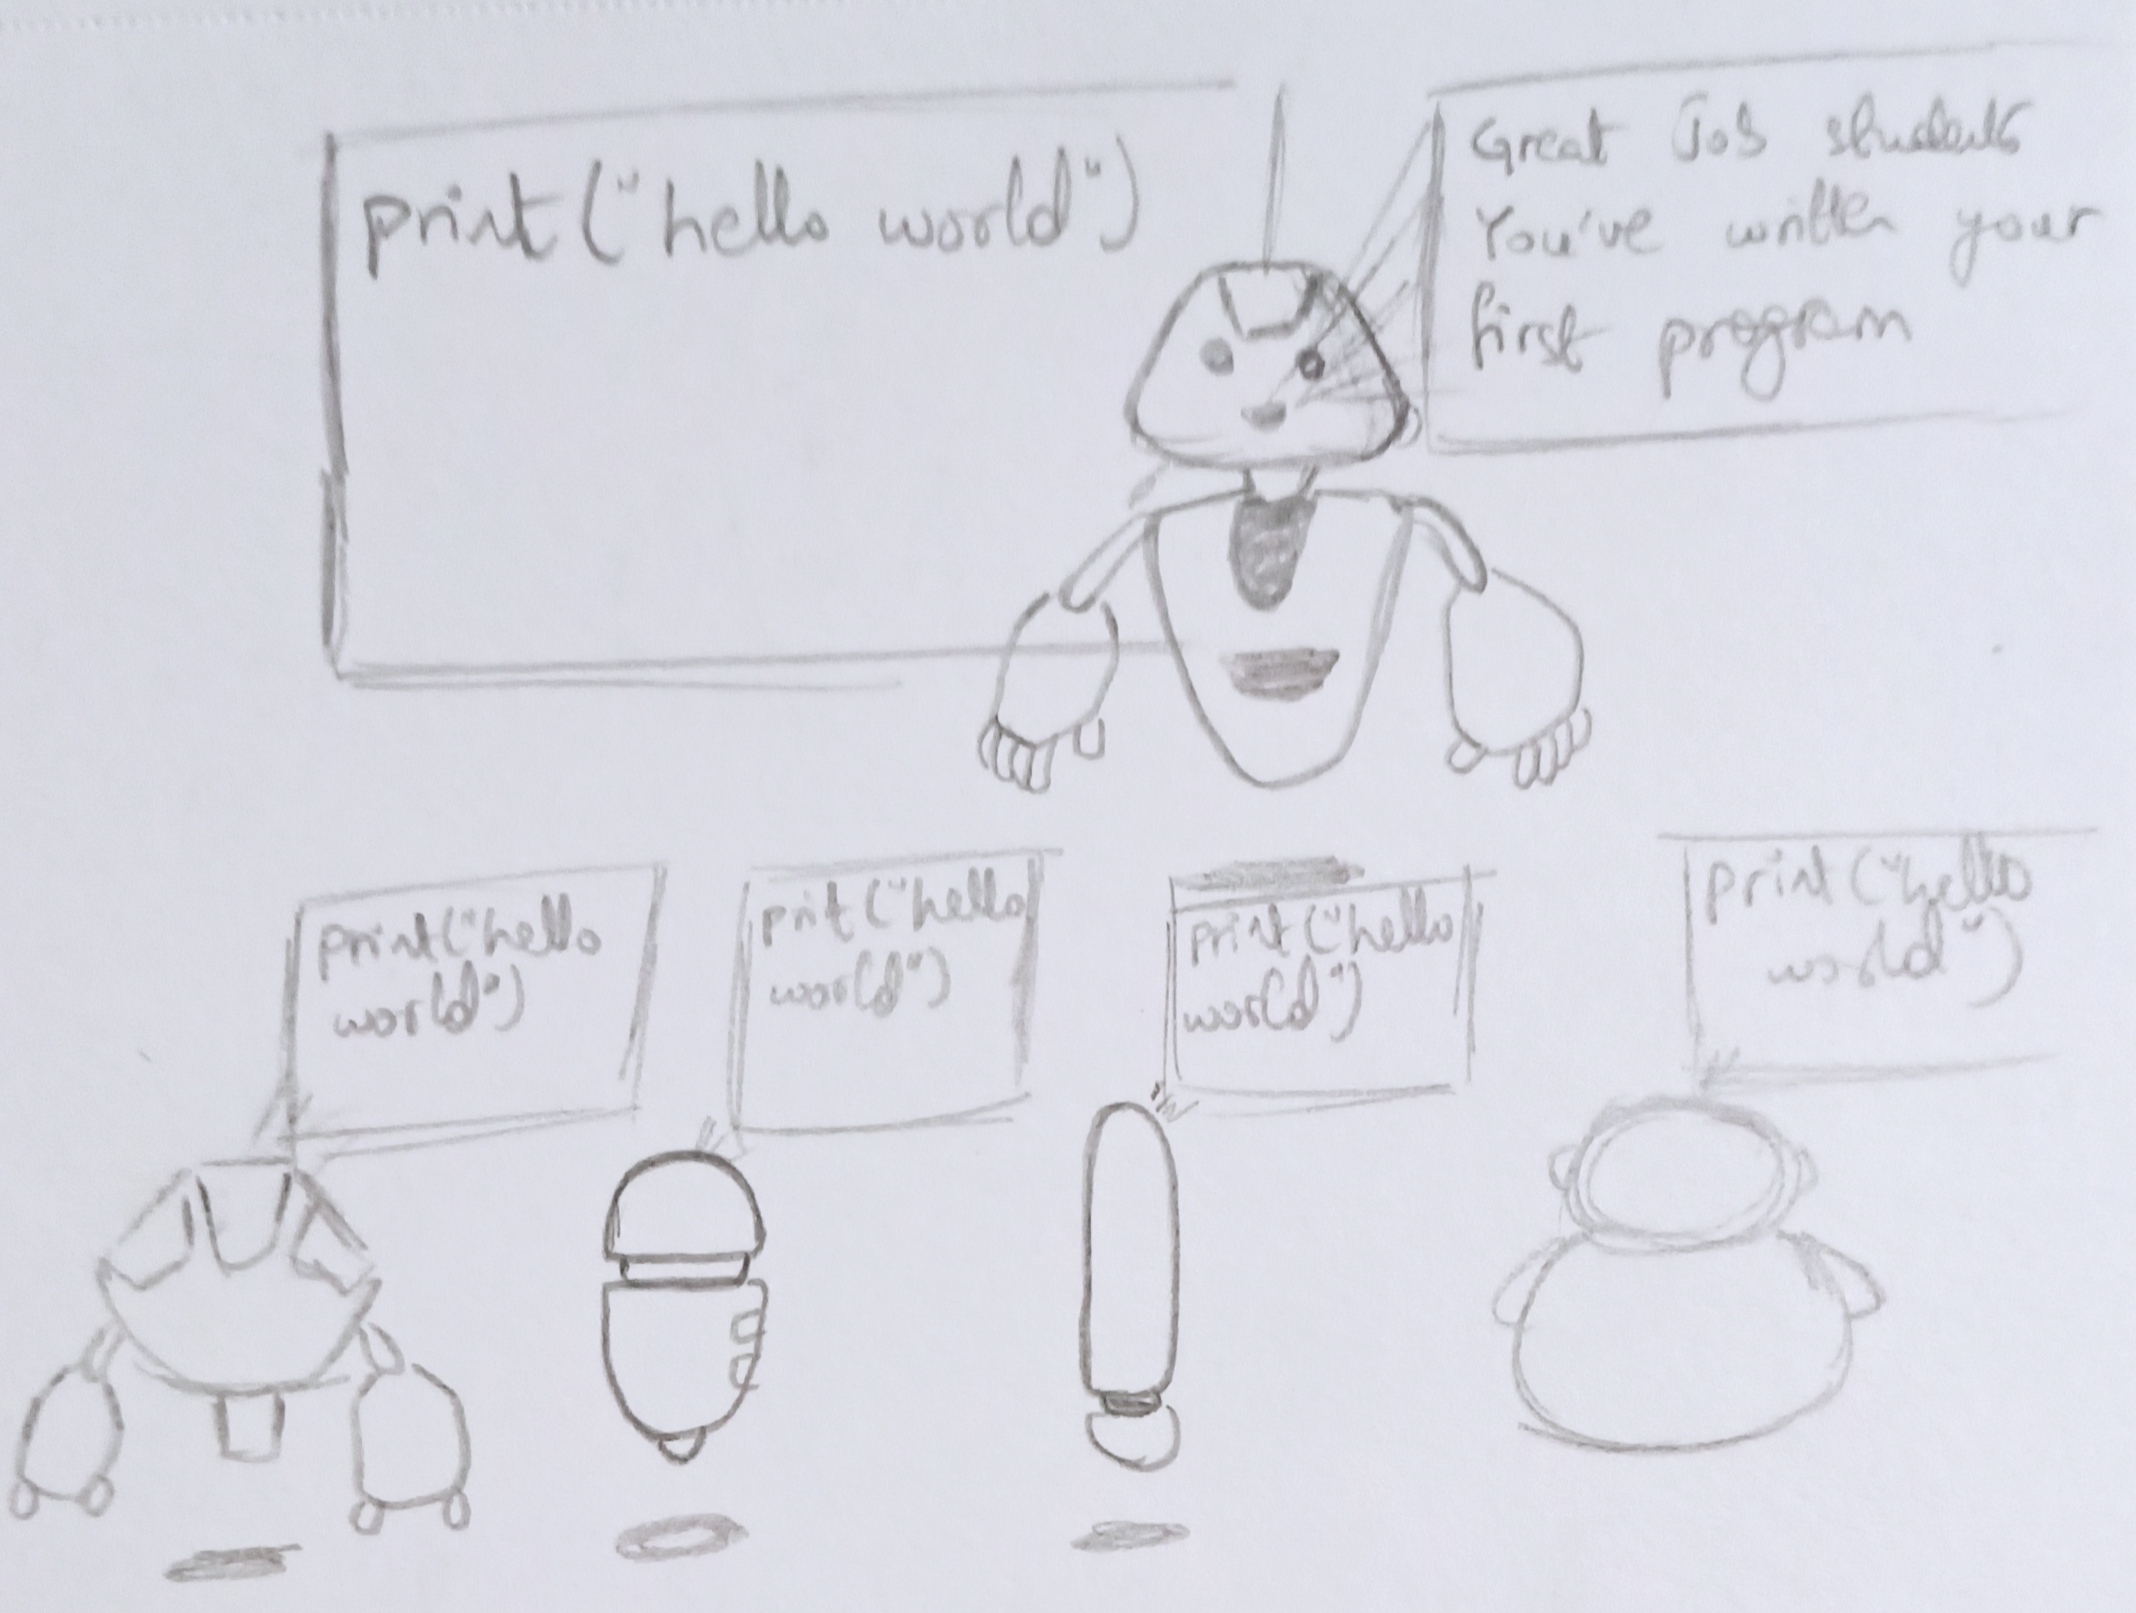 print("hello world")
Great Job students
You've written your
first program
print("hello
world")
prit("hello
world")
print("hello
world")
print("hello
world")